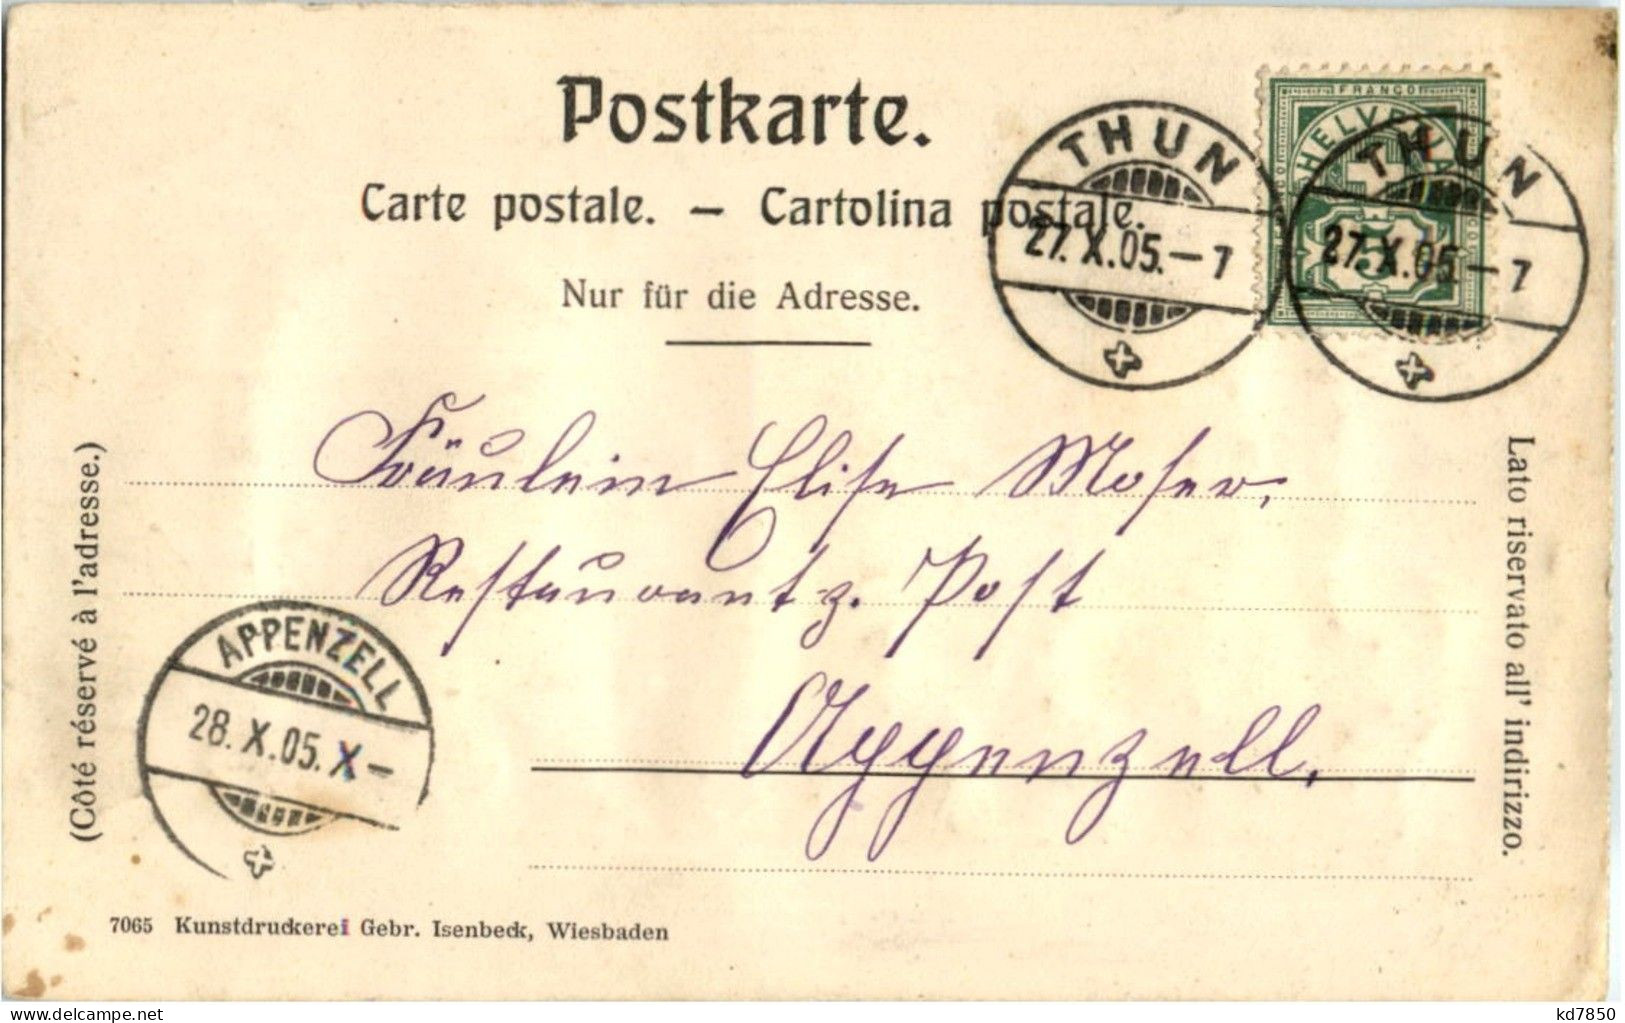 Postkarte.
Carte postale. — Cartolina postale.
Nur für die Adresse.
FRANCO
HELVETIA
5
THUN
27.X.05.–7
THUN
27.X.05–7
Fräulein Elise Moser,
Restaurant z. Post
Appenzell.
(Côté réservé à l'adresse.)
Lato riservato all' indirizzo.
APPENZELL
28.X.05.X–
7065 Kunstdruckerei Gebr. Isenbeck, Wiesbaden
delcampe.net
kd7850